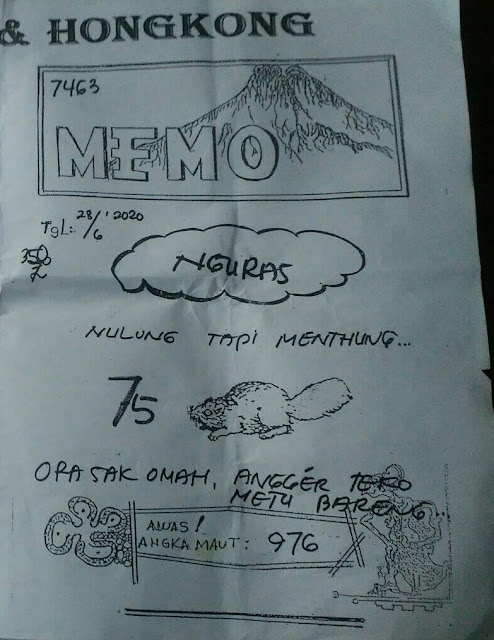 & HONGKONG
7463
MEMO
TgL: 28/6 '2020
NGURAS
NULUNG TAPI MENTHUNG...
75
ORA SAK OMAH, ANGGER TEKO
METU BARENG...
AWAS!
ANGKA MAUT: 976